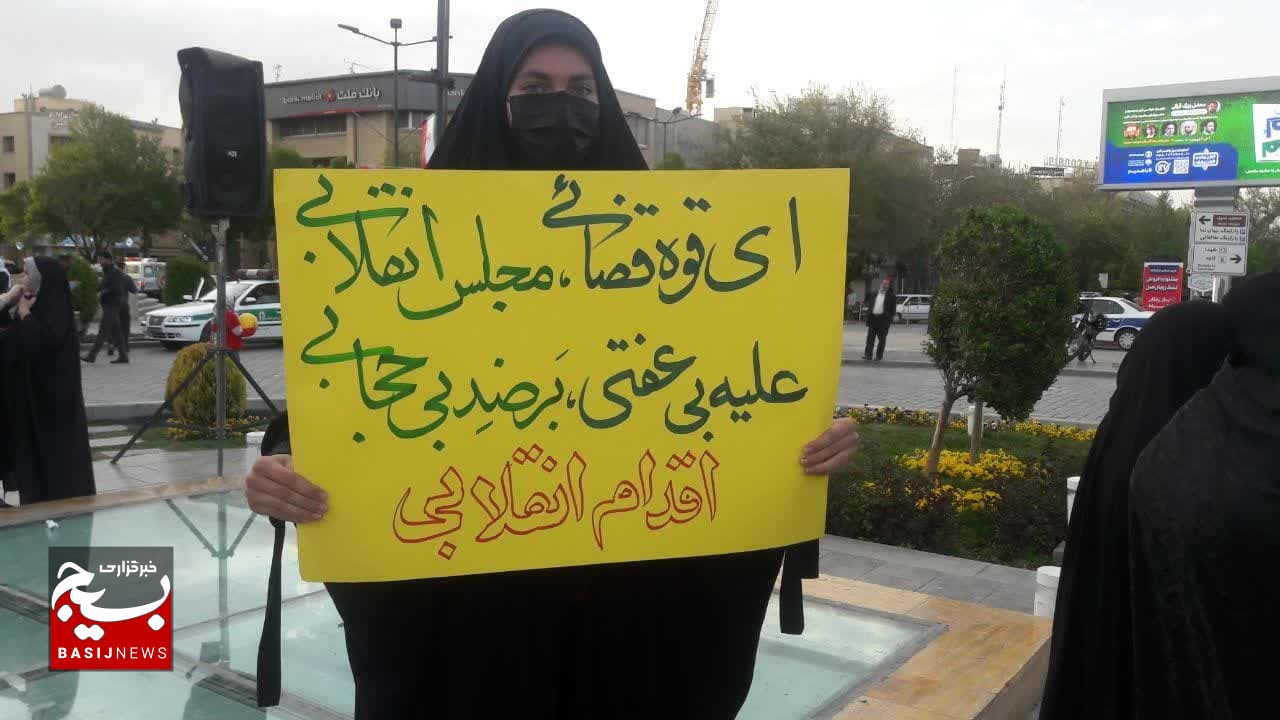 بانک ملت
bank mellat
ای قوه قضائے، مجلس انقلابی
علیه بی عفتی، بَر ضدِ بی حجابی
اقدام انقلابی
خبرگزاری
بسیج
BASIJNEWS